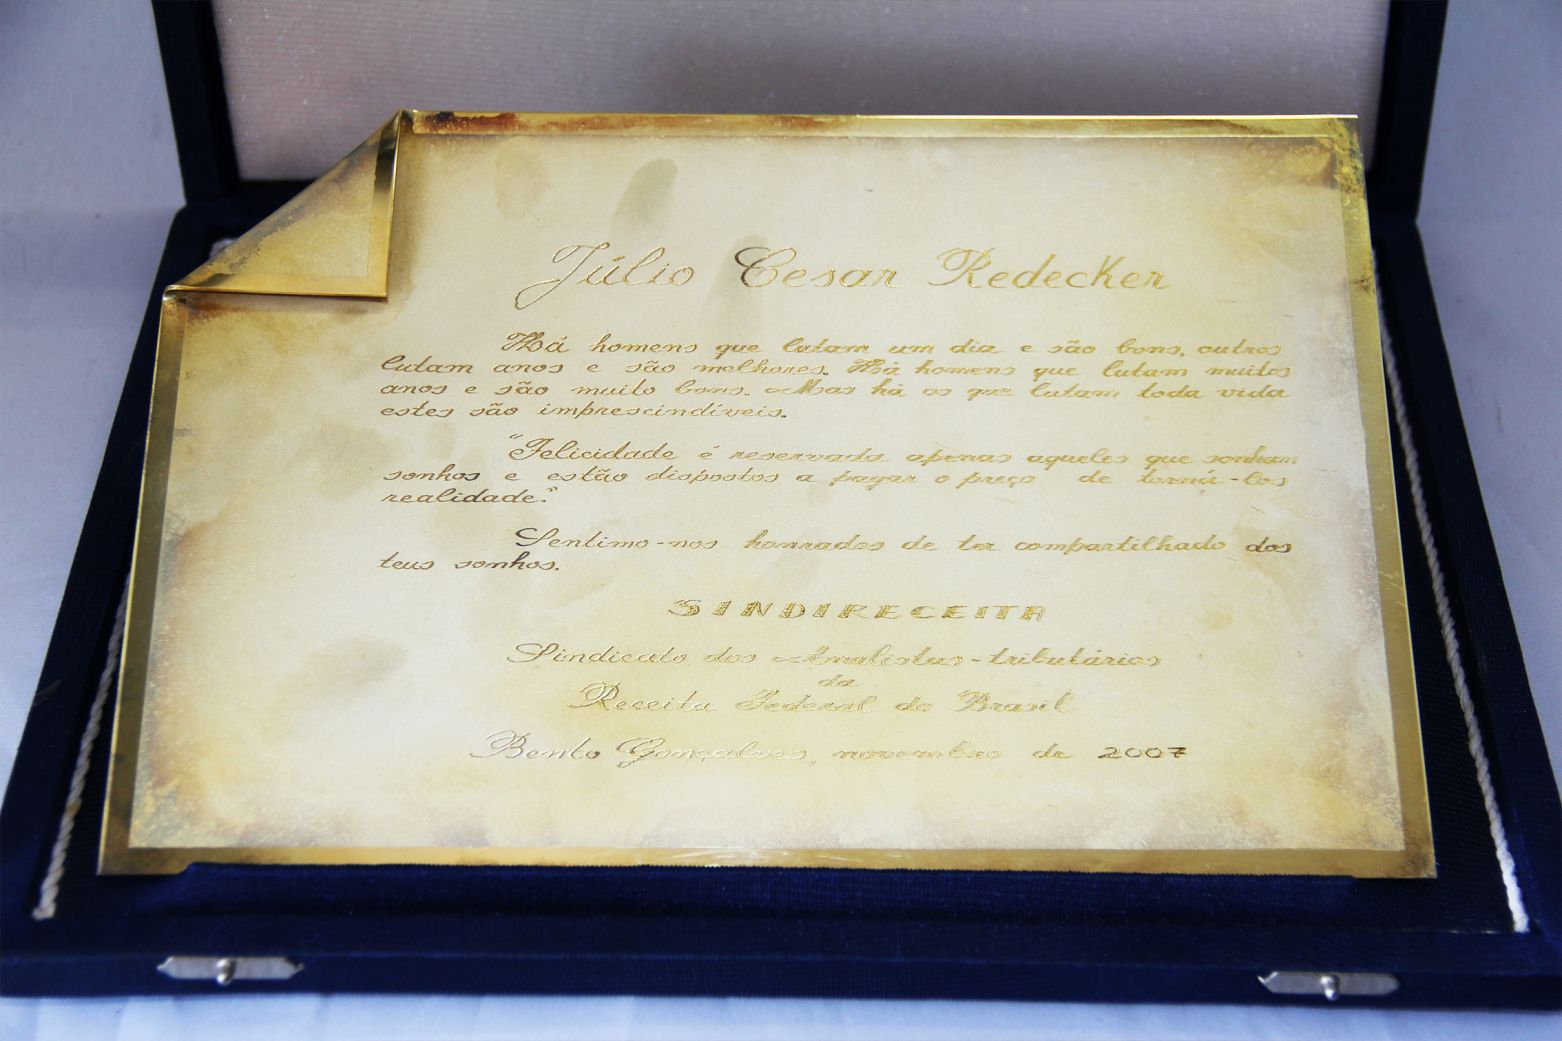 Júlio Cesar Redecker
Há homens que lutam um dia e são bons, outros
lutam anos e são melhores. Há homens que lutam muitos
anos e são muito bons. Mas há os que lutam toda vida
estes são imprescindíveis.
"Felicidade é reservada apenas aqueles que sonham
sonhos e estão dispostos a pagar o preço de torná-los
realidade."
Sentimo-nos honrados de ter compartilhado dos
teus sonhos.
SINDIRECEITA
Sindicato dos Analistas-tributários
da
Receita Federal do Brasil
Bento Gonçalves, novembro de 2007